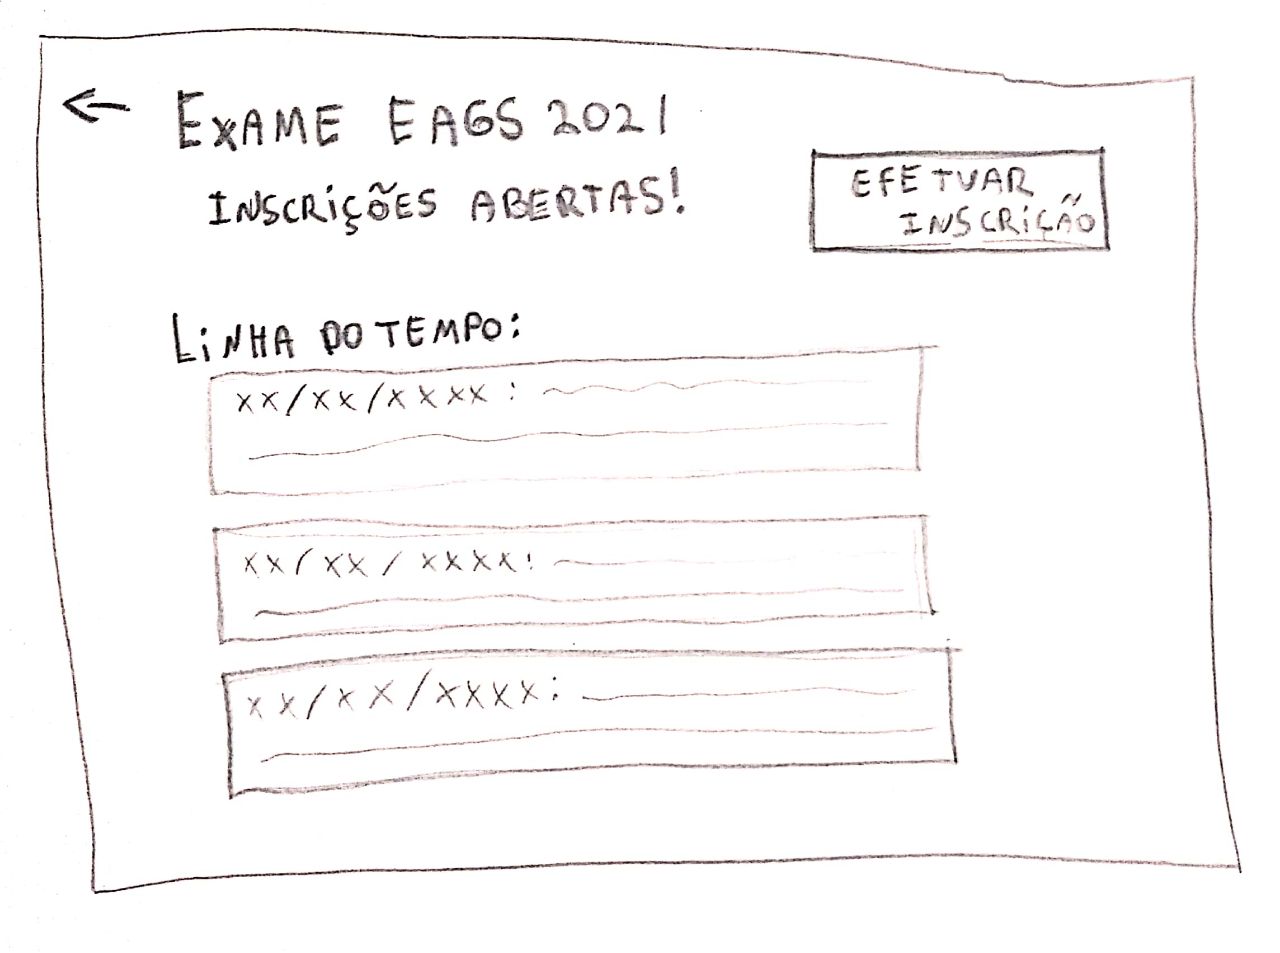 ← EXAME EAGS 2021
INSCRIÇÕES ABERTAS!
EFETUAR
INSCRIÇÃO
LINHA DO TEMPO:
xx/xx/xxxx:
xx/xx/xxxx:
xx/xx/xxxx: